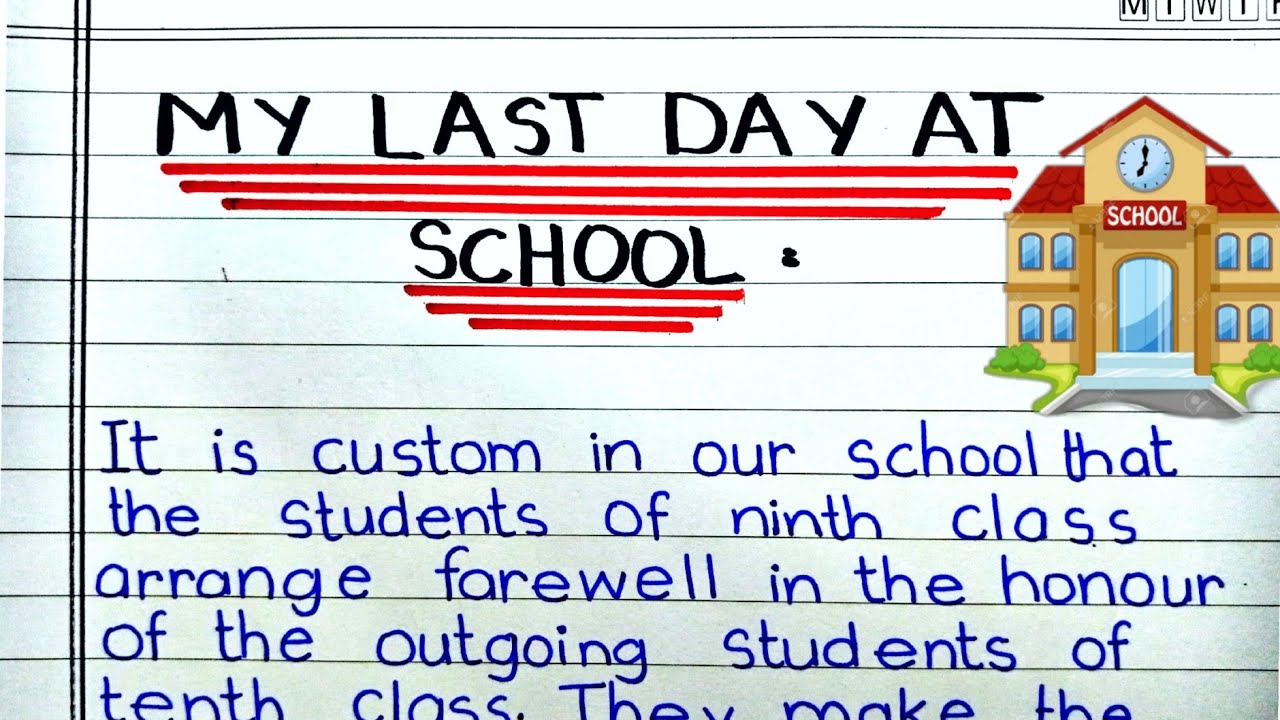 M T W T F
MY LAST DAY AT
SCHOOL :
SCHOOL
It is custom in our school that
the students of ninth class
arrange farewell in the honour
of the outgoing students of
tenth class. They make the